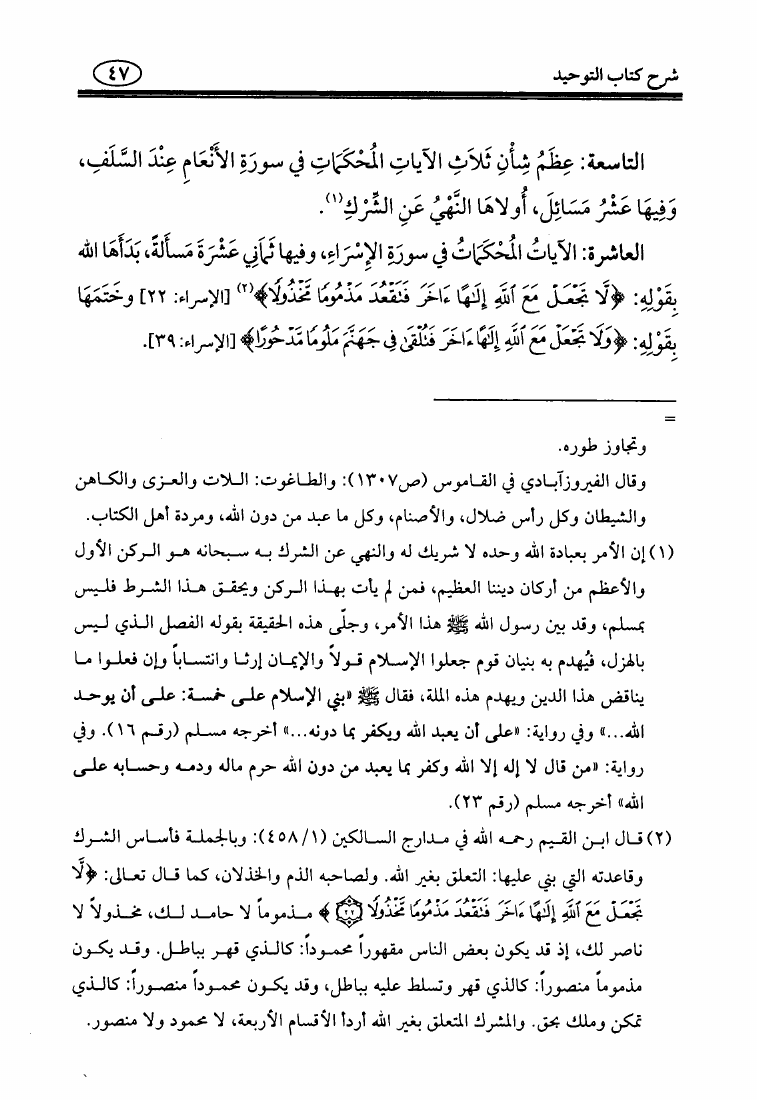 شرح كتاب التوحيد
٤٧
التاسعة: عِظَمُ شَأْنِ ثَلَاثِ الآيَاتِ المُحْكَمَاتِ في سورَةِ الأَنْعَامِ عِنْدَ السَّلَفِ،
وَفِيهَا عَشْرُ مَسَائِلَ، أُولاهَا النَّهْيُ عَنِ الشِّرْكِ(١).
العاشرة: الآيَاتُ المُحْكَمَاتُ في سورَةِ الإِسْرَاءِ، وفيها ثَمَانِي عَشْرَةَ مَسألَةً، بَدَأَهَا الله
بِقَوْلِهِ: ﴿لَّا تَجْعَلْ مَعَ ٱللَّهِ إِلَـٰهًا ءَاخَرَ فَتَقْعُدَ مَذْمُومًا مَّخْذُولًا﴾(٢) [الإسراء: ٢٢] وخَتَمَهَا
بِقَوْلِهِ: ﴿وَلَا تَجْعَلْ مَعَ ٱللَّهِ إِلَـٰهًا ءَاخَرَ فَتُلْقَىٰ فِي جَهَنَّمَ مَلُومًا مَّدْحُورًا﴾ [الإسراء: ٣٩].
=
وتجاوز طوره.
وقال الفيروزآبادي في القاموس (ص١٣٠٧): والطاغوت: اللات والعزى والكاهن
والشيطان وكل رأس ضلال، والأصنام، وكل ما عبد من دون الله، ومردة أهل الكتاب.
(١) إن الأمر بعبادة الله وحده لا شريك له والنهي عن الشرك به سبحانه هو الركن الأول
والأعظم من أركان ديننا العظيم، فمن لم يأت بهذا الركن ويحقق هذا الشرط فليس
بمسلم، وقد بين رسول الله ﷺ هذا الأمر، وجلّى هذه الحقيقة بقوله الفصل الذي ليس
بالهزل، فيُهدم به بنيان قوم جعلوا الإسلام قولاً والإيمان إرثا وانتساباً وإن فعلوا ما
يناقض هذا الدين ويهدم هذه الملة، فقال ﷺ «بني الإسلام على خمسة: على أن يوحد
الله...» وفي رواية: «على أن يعبد الله ويكفر بما دونه...» أخرجه مسلم (رقم ١٦). وفي
رواية: «من قال لا إله إلا الله وكفر بما يعبد من دون الله حرم ماله ودمه وحسابه على
الله» أخرجه مسلم (رقم ٢٣).
(٢) قال ابن القيم رحمه الله في مدارج السالكين (٤٥٨/١): وبالجملة فأساس الشرك
وقاعدته التي بني عليها: التعلق بغير الله. ولصاحبه الذم والخذلان، كما قال تعالى: ﴿لَّا
تَجْعَلْ مَعَ ٱللَّهِ إِلَـٰهًا ءَاخَرَ فَتَقْعُدَ مَذْمُومًا مَّخْذُولًا ۝٢٢﴾ مذموماً لا حامد لك، مخذولاً لا
ناصر لك، إذ قد يكون بعض الناس مقهوراً محموداً: كالذي قهر بباطل. وقد يكون
مذموماً منصوراً: كالذي قهر وتسلط عليه بباطل، وقد يكون محموداً منصوراً: كالذي
تمكن وملك بحق. والمشرك المتعلق بغير الله أردأ الأقسام الأربعة، لا محمود ولا منصور.